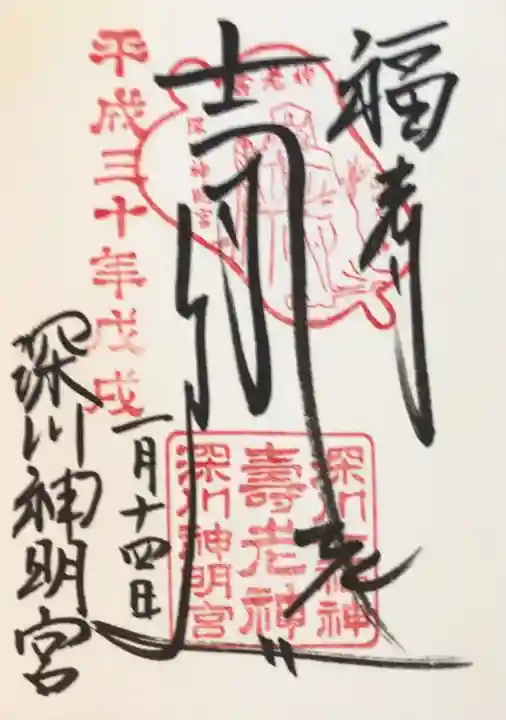 福寿
寿老
壽老神
深川神明宮
深川七福神
壽老神
深川神明宮
平成三十年戊戌
一月十四日
深川神明宮